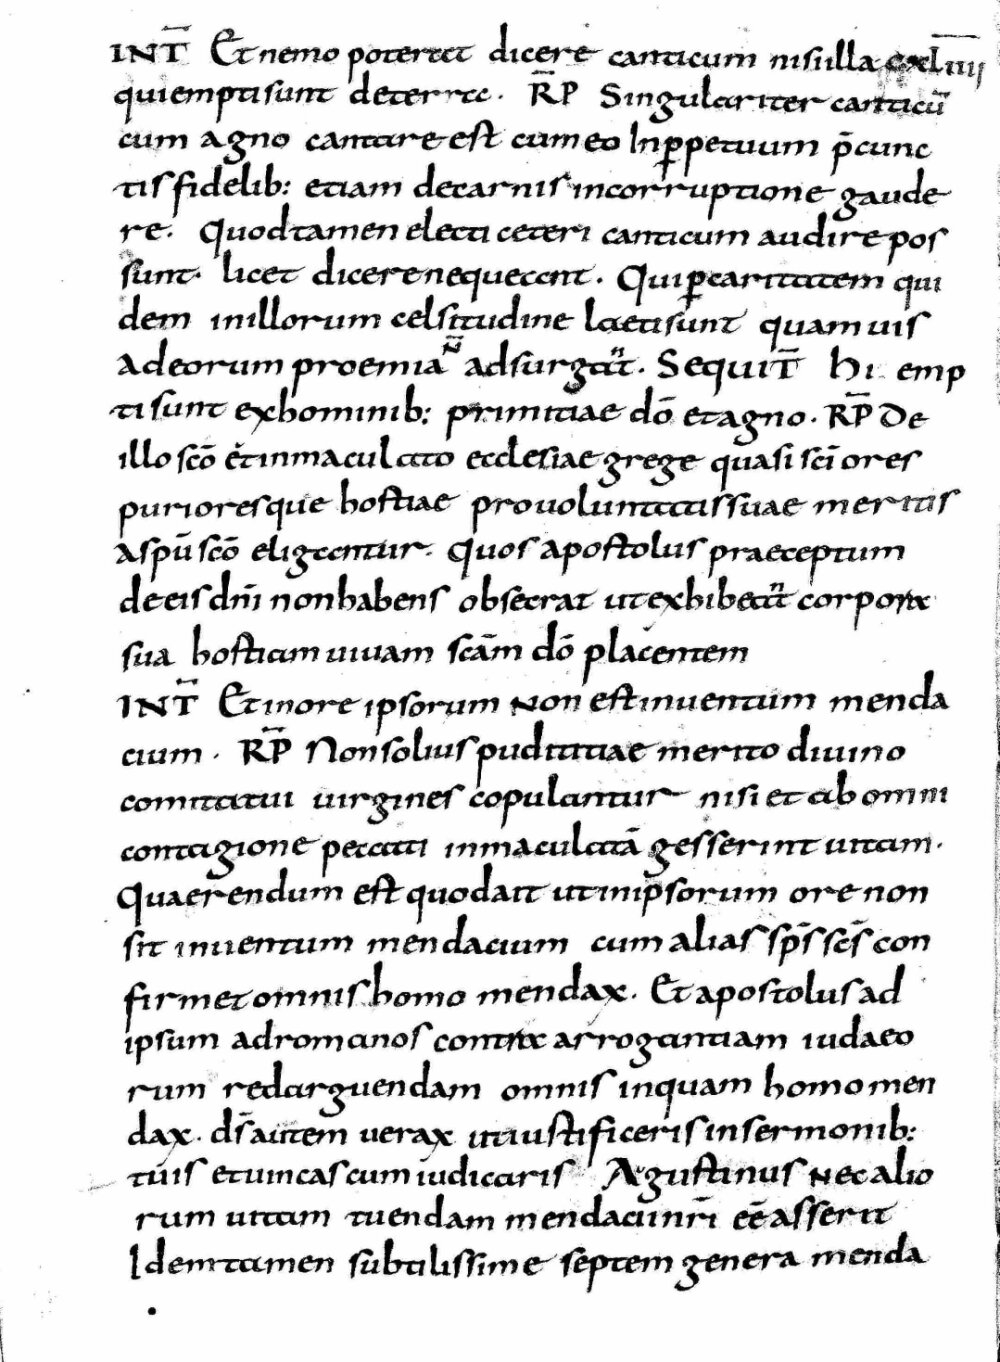 INT̄ Et nemo poterat dicere canticum nisi illa cxliiii
qui empti sunt de terra. RP̄ Singulariter canticū
cum agno cantare est cum eo In ꝑpetuum p̄ cunc
tis fidelib: etiam de carnis incorruptione gaude
re. Quod tamen electi ceteri canticum audire pos
sunt. licet dicere nequeant. Qui ꝑ caritatem qui
dem in illorum celsitudine laeti sunt quamuis
ad eorum proemia ñ adsurgant. Sequit̄ Hi emp
ti sunt ex hominib: primitiae dō et agno. RP̄ De
illo scō et inmaculato ecclesiae grege quasi sc̄iores
purioresque hostiae pro uoluntatis suae meritis
a spū scō eligantur. Quos apostolus praeceptum
de eis dn̄i non habens obsecrat ut exhibeant corpora
sua hostiam uiuam scām dō placentem
INT̄ Et in ore ipsorum non est inuentum menda
cium. RP̄ Non solius puditiae merito diuino
comitatui uirgines copulantur nisi et ab omni
contagione peccati inmaculatā gesserint uitam.
Quaerendum est quod ait ut in ipsorum ore non
sit inuentum mendacium cum alias sp̄s sc̄s con
firmet omnis homo mendax. Et apostolus ad
ipsum ad romanos contra arrogantiam iudaeo
rum redarguendam omnis inquam homo men
dax. ds̄ autem uerax ut iustificeris in sermonib:
tuis et uincas cum iudicaris Agustinus nec alio
rum uitam tuendam mendacii nr̄i eē asserit
Idem tamen subtilissime septem genera menda